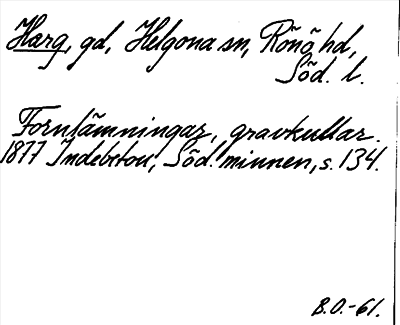 Harg, gd, Helgona sn, Rönö hd,
Söd. l.
Fornlämningar, gravkullar.
1877 Indebetou, Söd. minnen, s. 134.
B.O.-61.